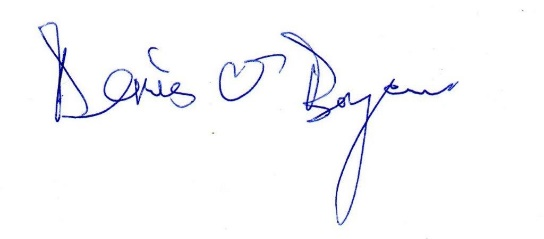 Denis O'Bryen